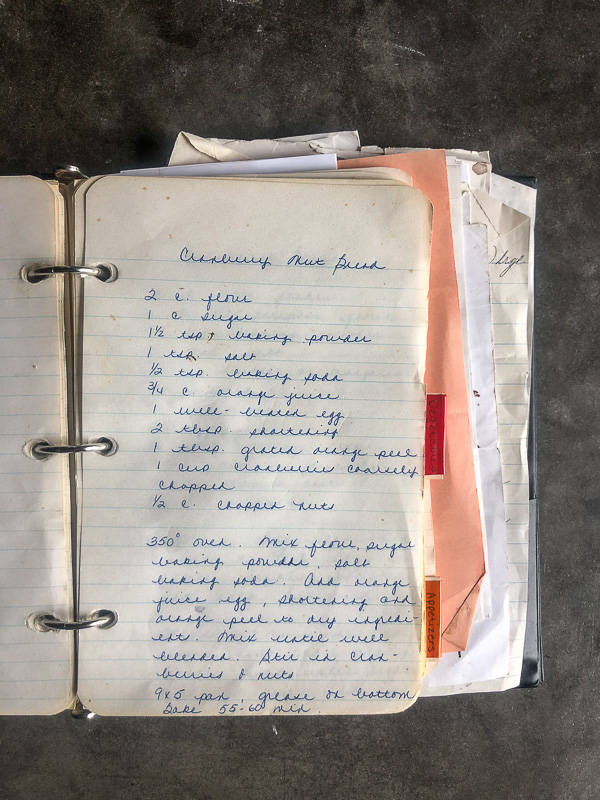 Cranberry Nut Bread
2 c. flour
1 c sugar
1½ tsp. baking powder
1 tsp. salt
½ tsp. baking soda
¾ c. orange juice
1 well-beaten egg
2 tbsp. shortening
1 tbsp. grated orange peel
1 cup cranberries coarsely
chopped
½ c. chopped nuts
350° oven. Mix flour, sugar
baking powder, salt
baking soda. Add orange
juice egg, shortening and
orange peel to dry ingredi-
ents. Mix until well
blended. Stir in cran-
berries & nuts
9x5 pan, grease on bottom
Bake 55-60 min.
Appetizers